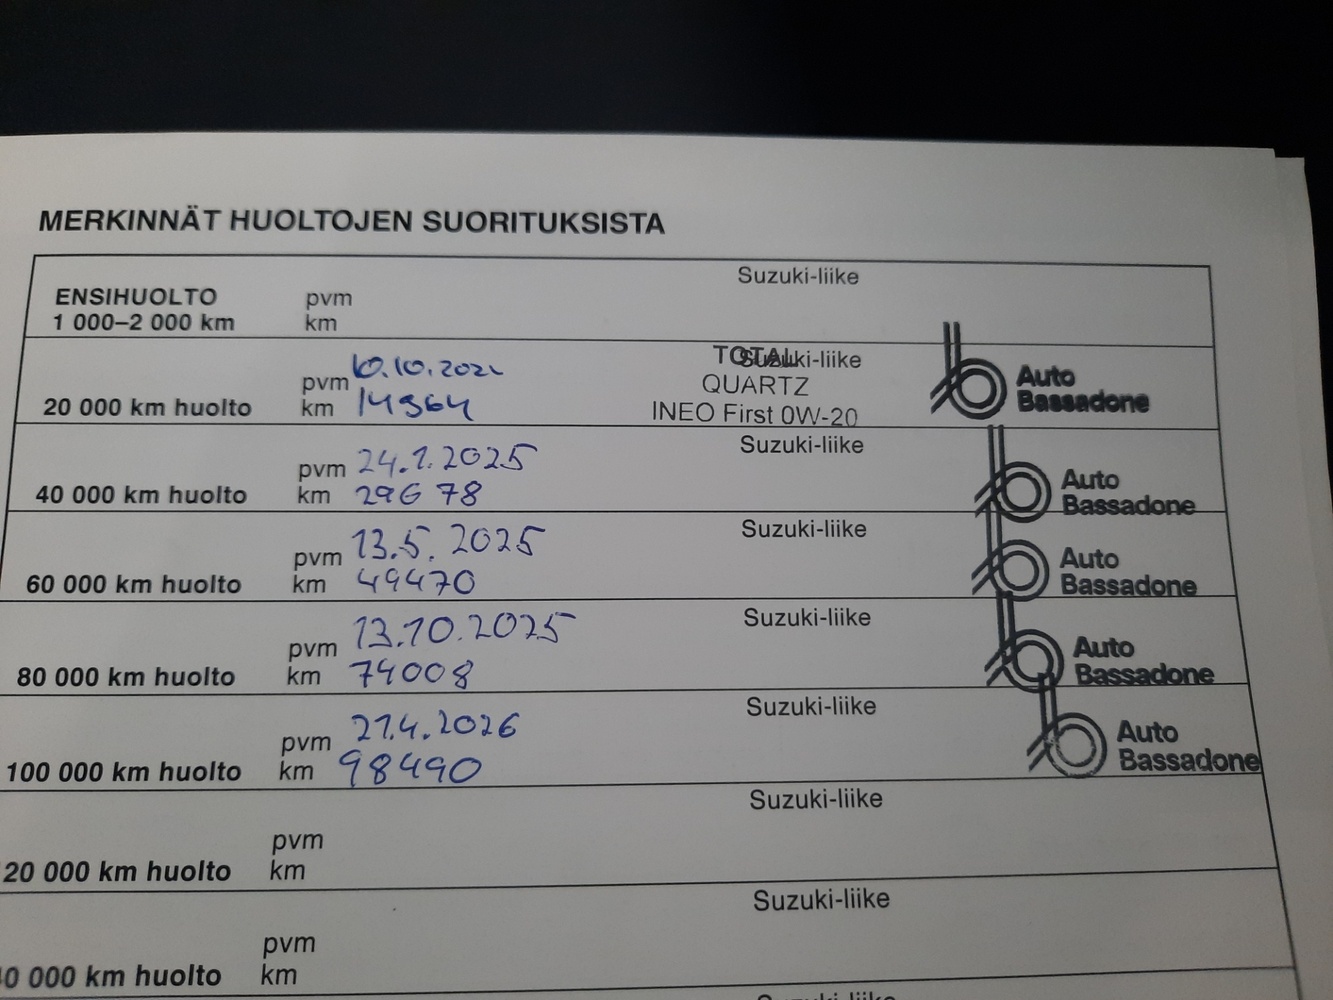 MERKINNÄT HUOLTOJEN SUORITUKSISTA
Suzuki-liike
ENSIHUOLTO pvm
1 000–2 000 km km
TOTAL Suzuki-liike
pvm 10.10.202 QUARTZ Auto
20 000 km huolto km 14364 INEO First 0W-20 Bassadone
Suzuki-liike
pvm 24.1.2025 Auto
40 000 km huolto km 29678 Bassadone
Suzuki-liike
pvm 13.5.2025 Auto
60 000 km huolto km 49470 Bassadone
Suzuki-liike
pvm 13.10.2025 Auto
80 000 km huolto km 74008 Bassadone
Suzuki-liike
pvm 27.4.2026 Auto
100 000 km huolto km 98490 Bassadone
Suzuki-liike
pvm
20 000 km huolto km
Suzuki-liike
pvm
0 000 km huolto km
Suzuki-liike